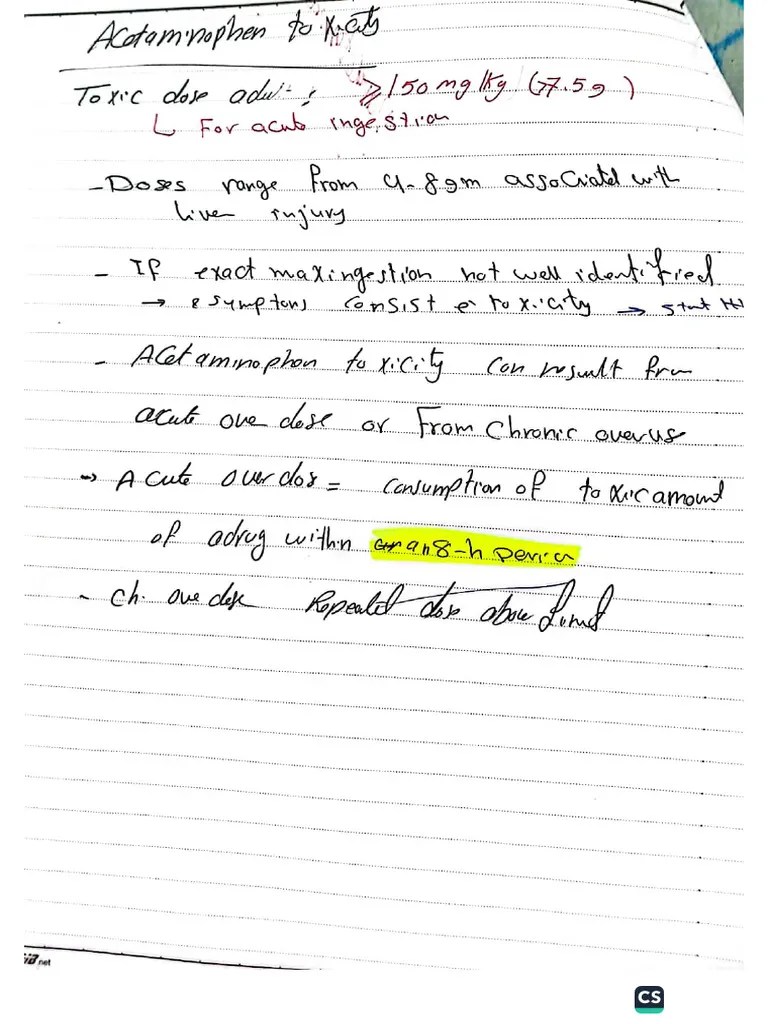 Acetaminophen toxicity
Toxic dose adult: ≥150 mg/kg (>7.5g)
↳ For acute ingestion
- Doses range from 4-8gm associated with
liver injury
- If exact max ingestion not well identified
→ symptoms consist toxicity → start
- Acetaminophen toxicity can result from
acute overdose or From Chronic overuse
→ Acute overdose = consumption of toxic amount
of a drug within an 8-h period
- ch. overdose Repeated dose above
net
CS